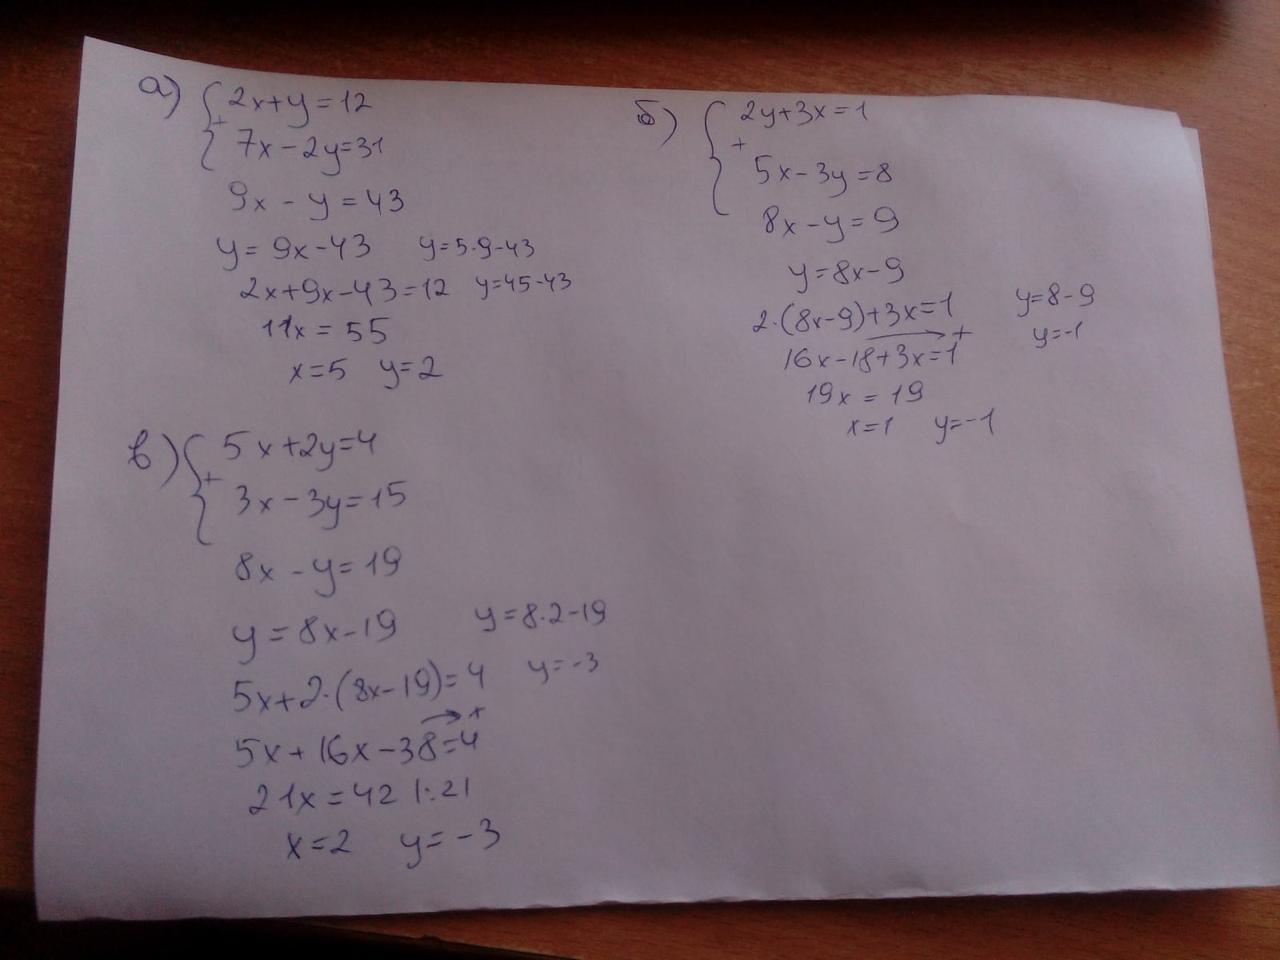 а) 2x+y=12
+
7x-2y=31
9x-y=43
y=9x-43 y=5·9-43
2x+9x-43=12 y=45-43
11x=55
x=5 y=2
б) 2y+3x=1
+
5x-3y=8
8x-y=9
y=8x-9
2·(8x-9)+3x=1 y=8-9
16x-18+3x=1 y=-1
19x=19
x=1 y=-1
в) 5x+2y=4
+
3x-3y=15
8x-y=19
y=8x-19 y=8·2-19
5x+2·(8x-19)=4 y=-3
5x+16x-38=4
21x=42 |:21
x=2 y=-3